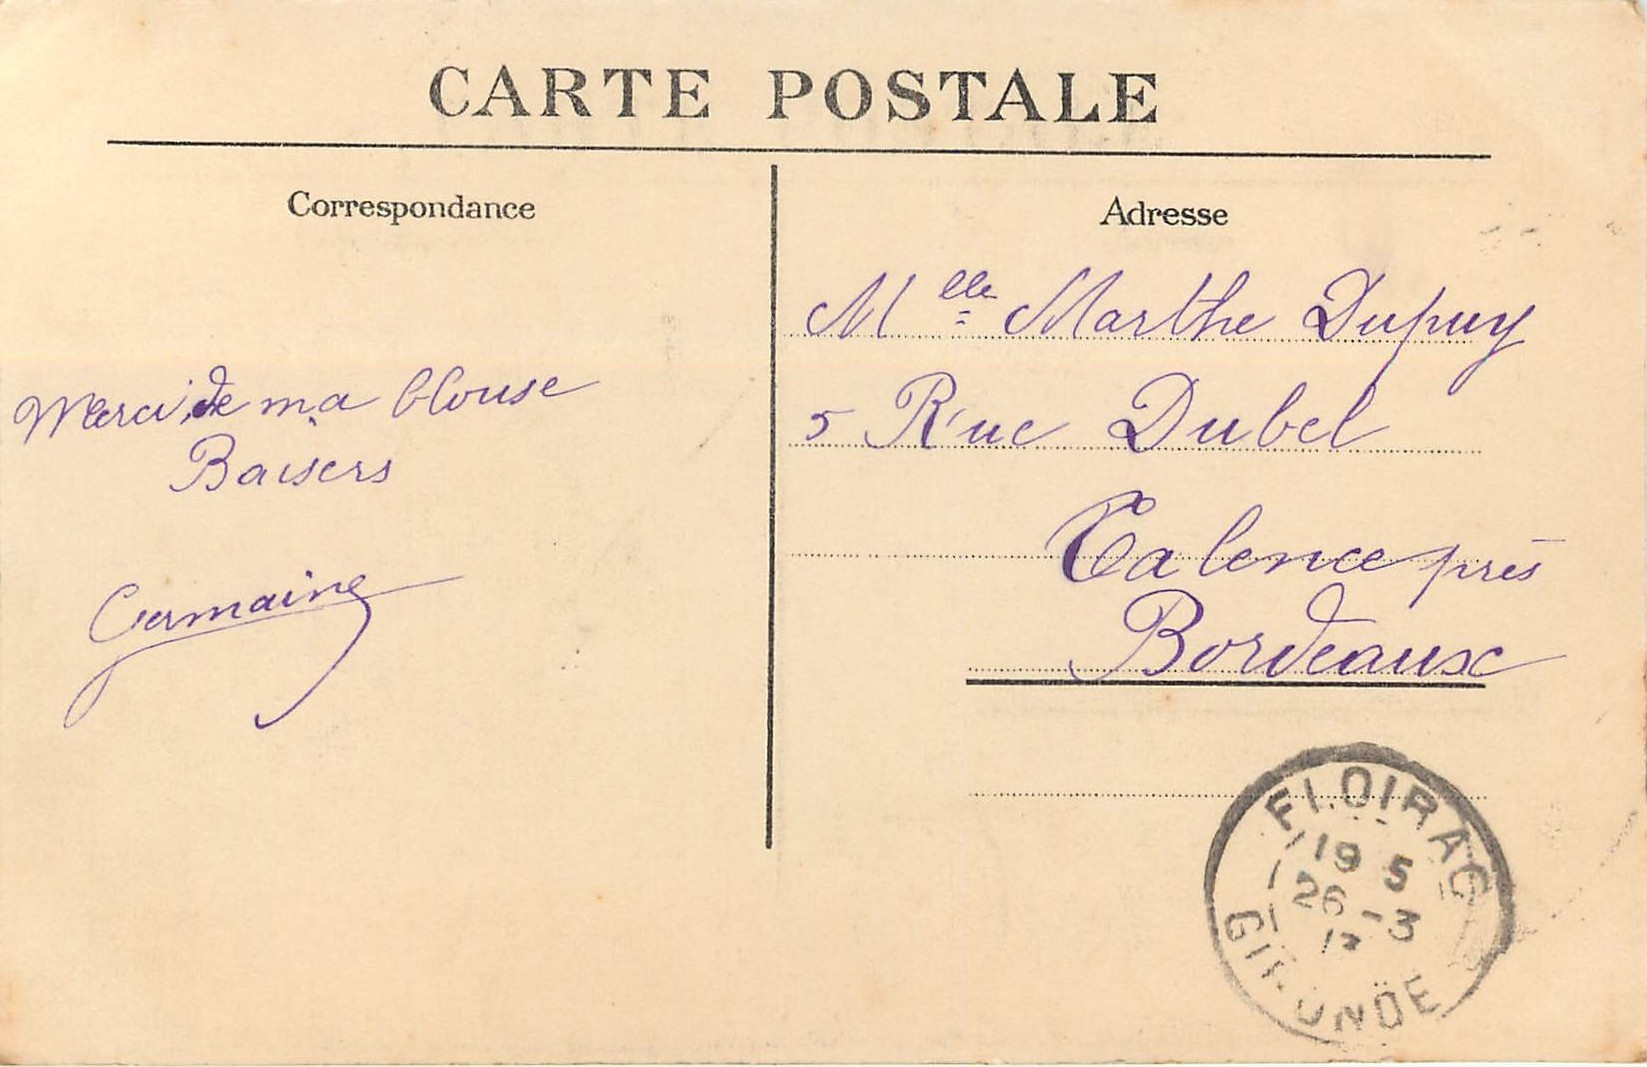 CARTE POSTALE
Correspondance
Merci de ma blouse
Baisers
Germaine
Adresse
Melle Marthe Dupuy
5 Rue Dubel
Talence près
Bordeaux
FLOIRAC
19 5
26 - 3
GIRONDE